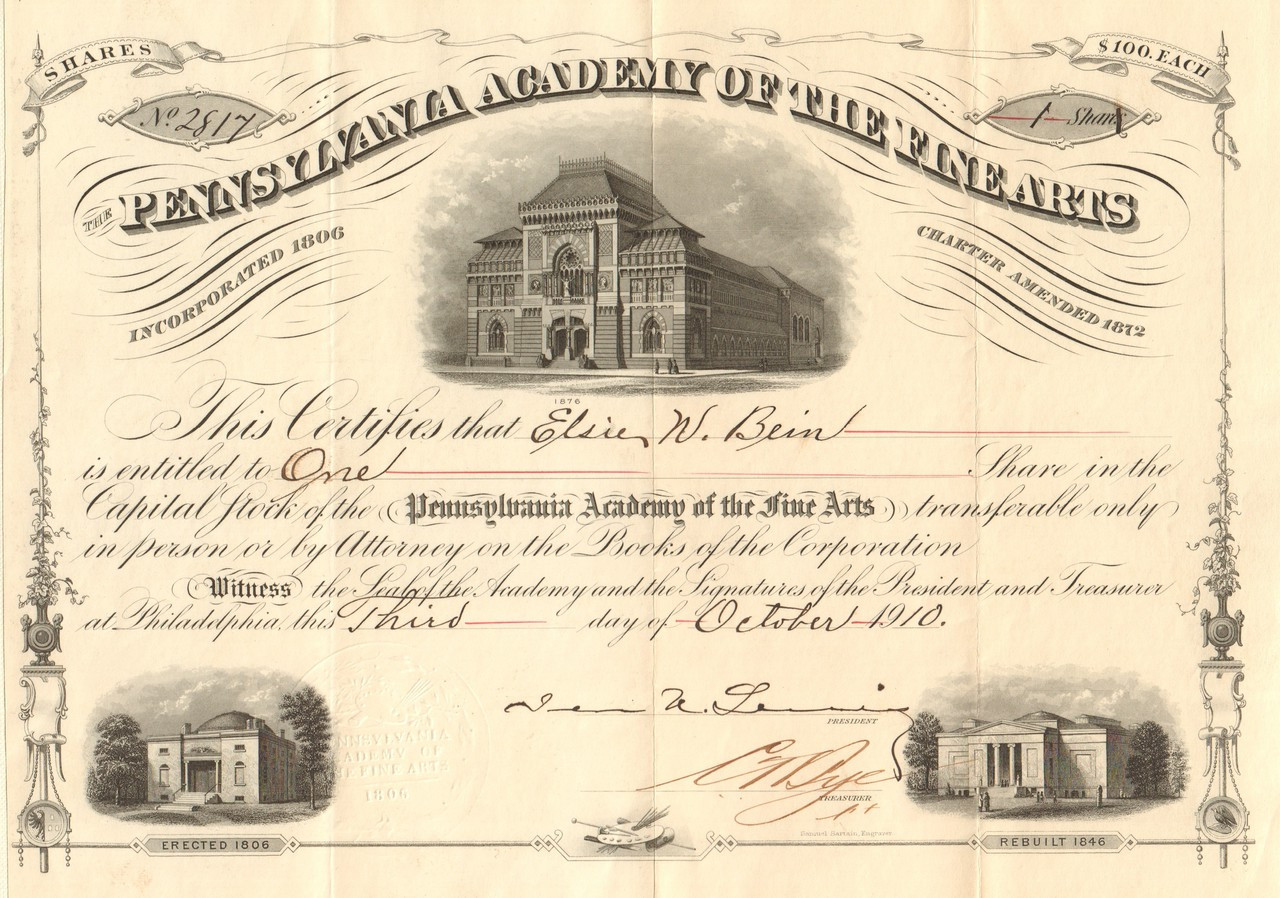 SHARES
$100. EACH
No. 2817
1 Share
THE PENNSYLVANIA ACADEMY OF THE FINE ARTS
INCORPORATED 1806
CHARTER AMENDED 1872
1876
This Certifies that Elsie W. Bein
is entitled to One Share in the
Capital Stock of the Pennsylvania Academy of the Fine Arts transferable only
in person or by Attorney on the Books of the Corporation
Witness the Seal of the Academy and the Signatures of the President and Treasurer
at Philadelphia, this Third day of October 1910.
PRESIDENT
PENNSYLVANIA
ACADEMY OF
THE FINE ARTS
1806
TREASURER
Samuel Sartain, Engraver
ERECTED 1806
REBUILT 1846